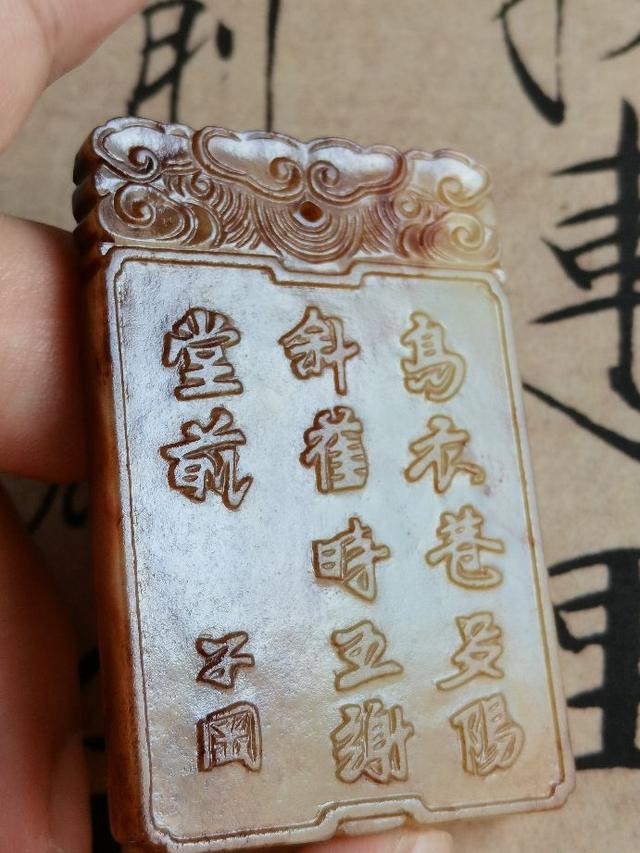 烏衣巷夕陽
斜舊時王謝
堂前
子岡